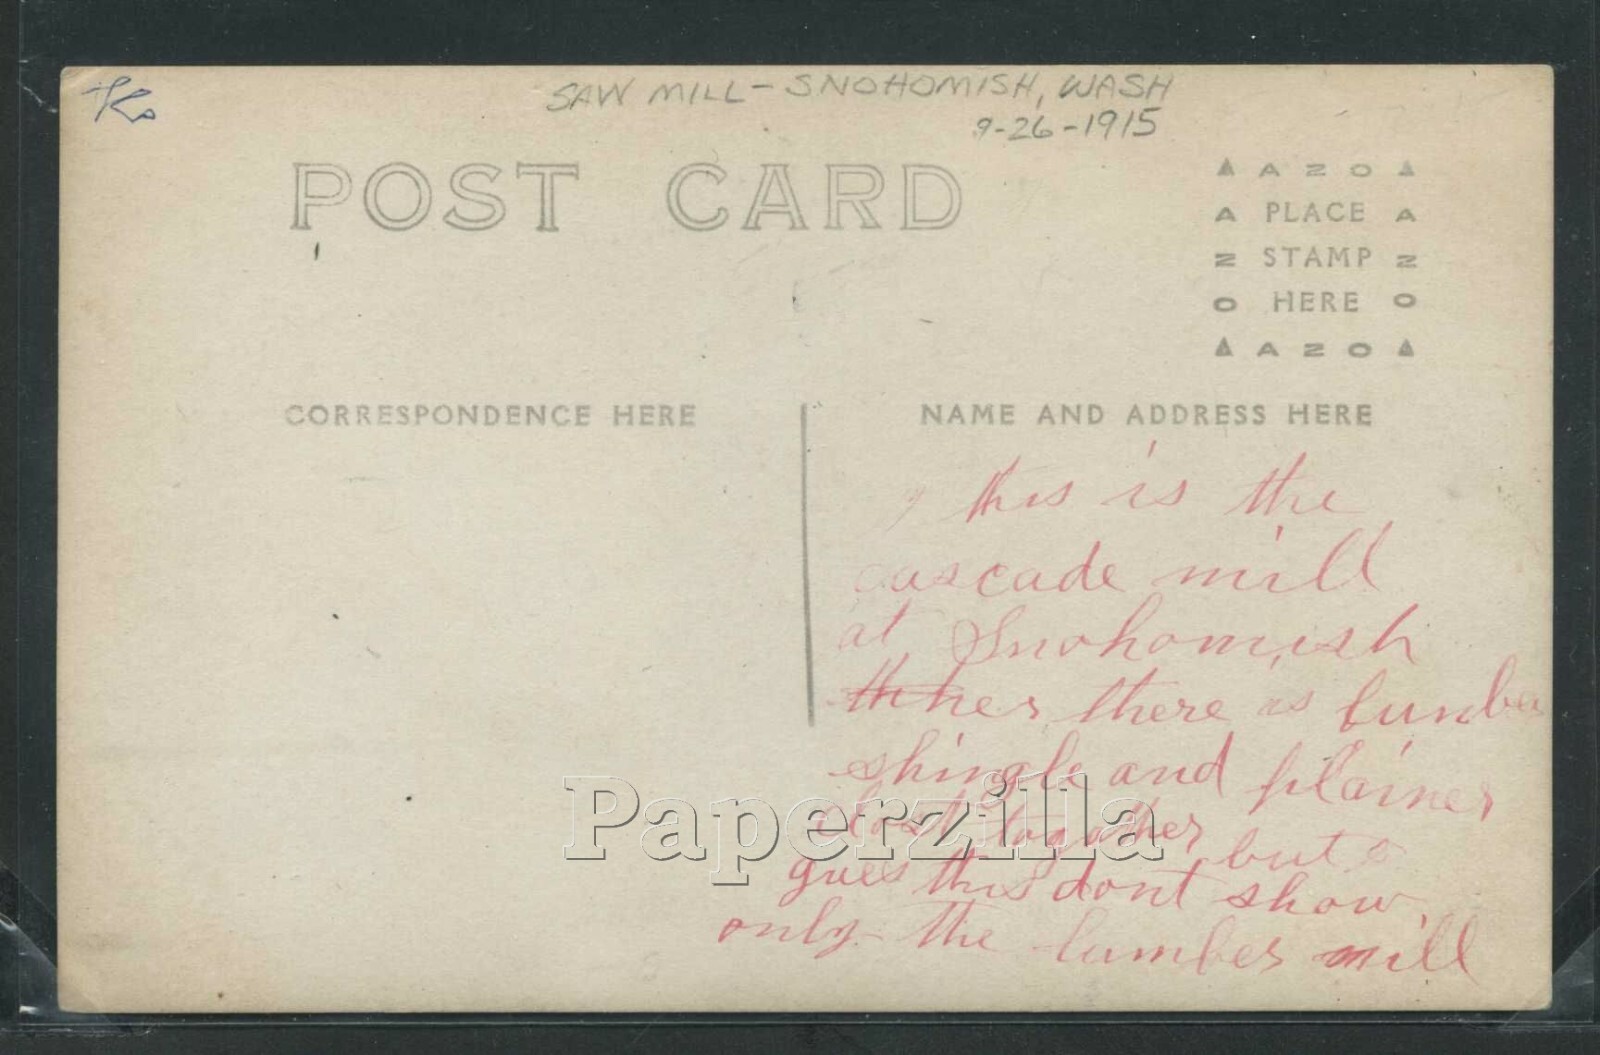 SAW MILL - SNOHOMISH, WASH
9-26-1915
POST CARD
▲ A Z O ▲
A PLACE A
Z STAMP Z
O HERE O
▲ A Z O ▲
CORRESPONDENCE HERE
NAME AND ADDRESS HERE
this is the
cascade mill
at Snohomish
there is lumber
shingle and plainer
Paperzilla
together but
gues this dont show
only the lumber mill